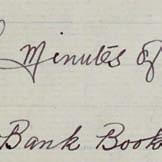 Minutes of
Bank Book